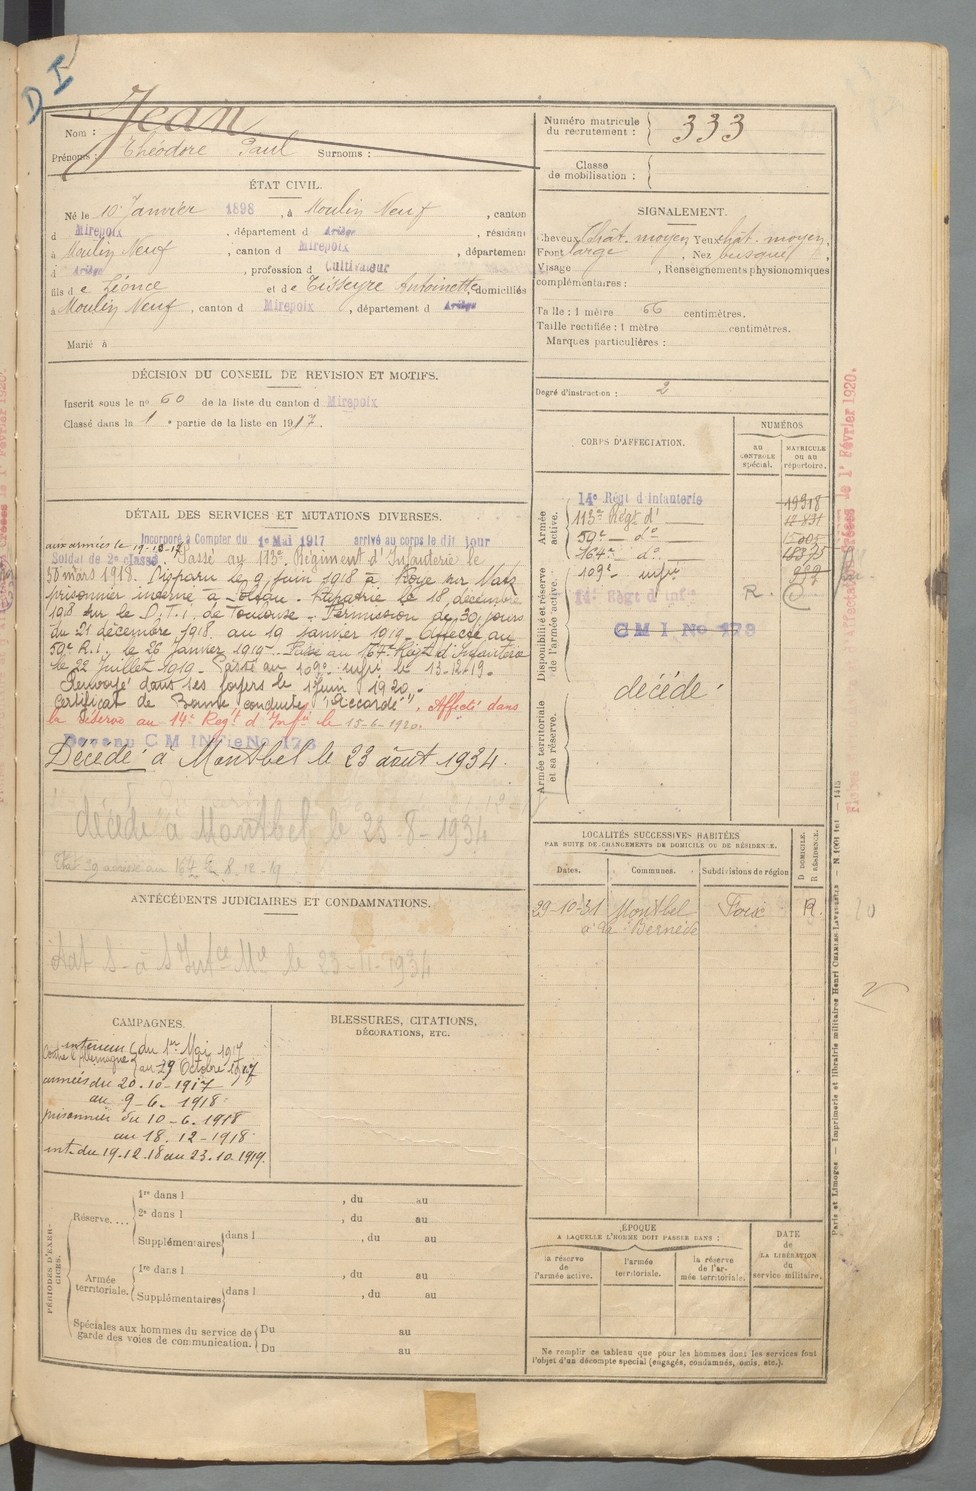 D I
Nom : Jean
Prénoms : Théodore Paul Surnoms :
Numéro matricule du recrutement : 333
Classe de mobilisation :
ÉTAT CIVIL.
Né le 10 Janvier 1898, à Moulin Neuf, canton
d Mirepoix, département d Ariège, résidant
à Moulin Neuf, canton d Mirepoix, département
d Ariège, profession d Cultivateur
fils de Léonce et de Tisseyre Antoinette, domiciliés
à Moulin Neuf, canton d Mirepoix, département d Ariège
Marié à
SIGNALEMENT.
Cheveux Chât. moyen Yeux chât. moyen,
Front large, Nez busqué,
Visage , Renseignements physionomiques
complémentaires :
Taille : 1 mètre 66 centimètres.
Taille rectifiée : 1 mètre centimètres.
Marques particulières :
DÉCISION DU CONSEIL DE REVISION ET MOTIFS.
Inscrit sous le no 60 de la liste du canton d Mirepoix
Classé dans la 1e partie de la liste en 1917.
Degré d'instruction : 2
DÉTAIL DES SERVICES ET MUTATIONS DIVERSES.
Incorporé à Compter du 1e Mai 1917 arrivé au corps le dit jour
aux armées le 19-10-17
Soldat de 2e classe. Passé au 113e Régiment d'Infanterie le
30 mars 1918. Disparu le 9 juin 1918 à Roye sur Matz
prisonnier interné à Soltau. Rapatrié le 18 décembre
1918 sur le D.T.I. de Toulouse. Permission de 30 jours
du 21 décembre 1918 au 19 janvier 1919. Affecté au
59e R.I. le 26 Janvier 1919. Passé au 164e Régt d'Infanterie
le 22 Juillet 1919. Passé au 109e infie le 13-12-19.
Renvoyé dans ses foyers le 1 Juin 1920.
Certificat de Bonne conduite "Accordé". Affecté dans
la réserve au 14e Regt d'Infie le 15-6-1920.
Devenu C M INFie No 178
Décédé à Montbel le 23 août 1934.
décédé à Montbel le 23-8-1934
ANTÉCÉDENTS JUDICIAIRES ET CONDAMNATIONS.
CORPS D'AFFECTATION.
NUMÉROS
AU CONTROLE spécial.
MATRICULE OU AU répertoire.
Armée active.
14e Régt d'Infanterie 19318
113e Régt d' 12 831
59e do 15005
164e do 18375
109e infie
Disponibilité et réserve de l'armée active.
14e Régt d'Infie R.
C M I No 178
décédé
Armée territoriale et sa réserve.
LOCALITÉS SUCCESSIVES HABITÉES
PAR SUITE DE CHANGEMENTS DE DOMICILE OU DE RÉSIDENCE.
D DOMICILE.
R RÉSIDENCE.
Dates. Communes. Subdivisions de région
29-10-31 Montbel Foix R.
à la Bernède
CAMPAGNES.
Contre l'Allemagne
intérieur du 1er Mai 1917
au 29 Octobre 1917
armées du 20.10-1917
au 9-6.1918
prisonnier du 10-6.1918
au 18.12-1918
int. du 19.12.18 au 23.10.1919.
BLESSURES, CITATIONS,
DÉCORATIONS, ETC.
PÉRIODES D'EXERCICES.
Réserve....
1re dans l , du au
2e dans l , du au
Supplémentaires dans l , du au
Armée territoriale.
1re dans l , du au
Supplémentaires dans l , du au
Spéciales aux hommes du service de garde des voies de communication.
Du au
Du au
ÉPOQUE
A LAQUELLE L'HOMME DOIT PASSER DANS :
la réserve de l'armée active.
l'armée territoriale.
la réserve de l'armée territoriale.
DATE de LA LIBÉRATION du service militaire.
Ne remplir ce tableau que pour les hommes dont les services font
l'objet d'un décompte spécial (engagés, condamnés, omis, etc.).
Paris et Limoges — Imprimerie et librairie militaires Henri CHARLES-LAVAUZELLE